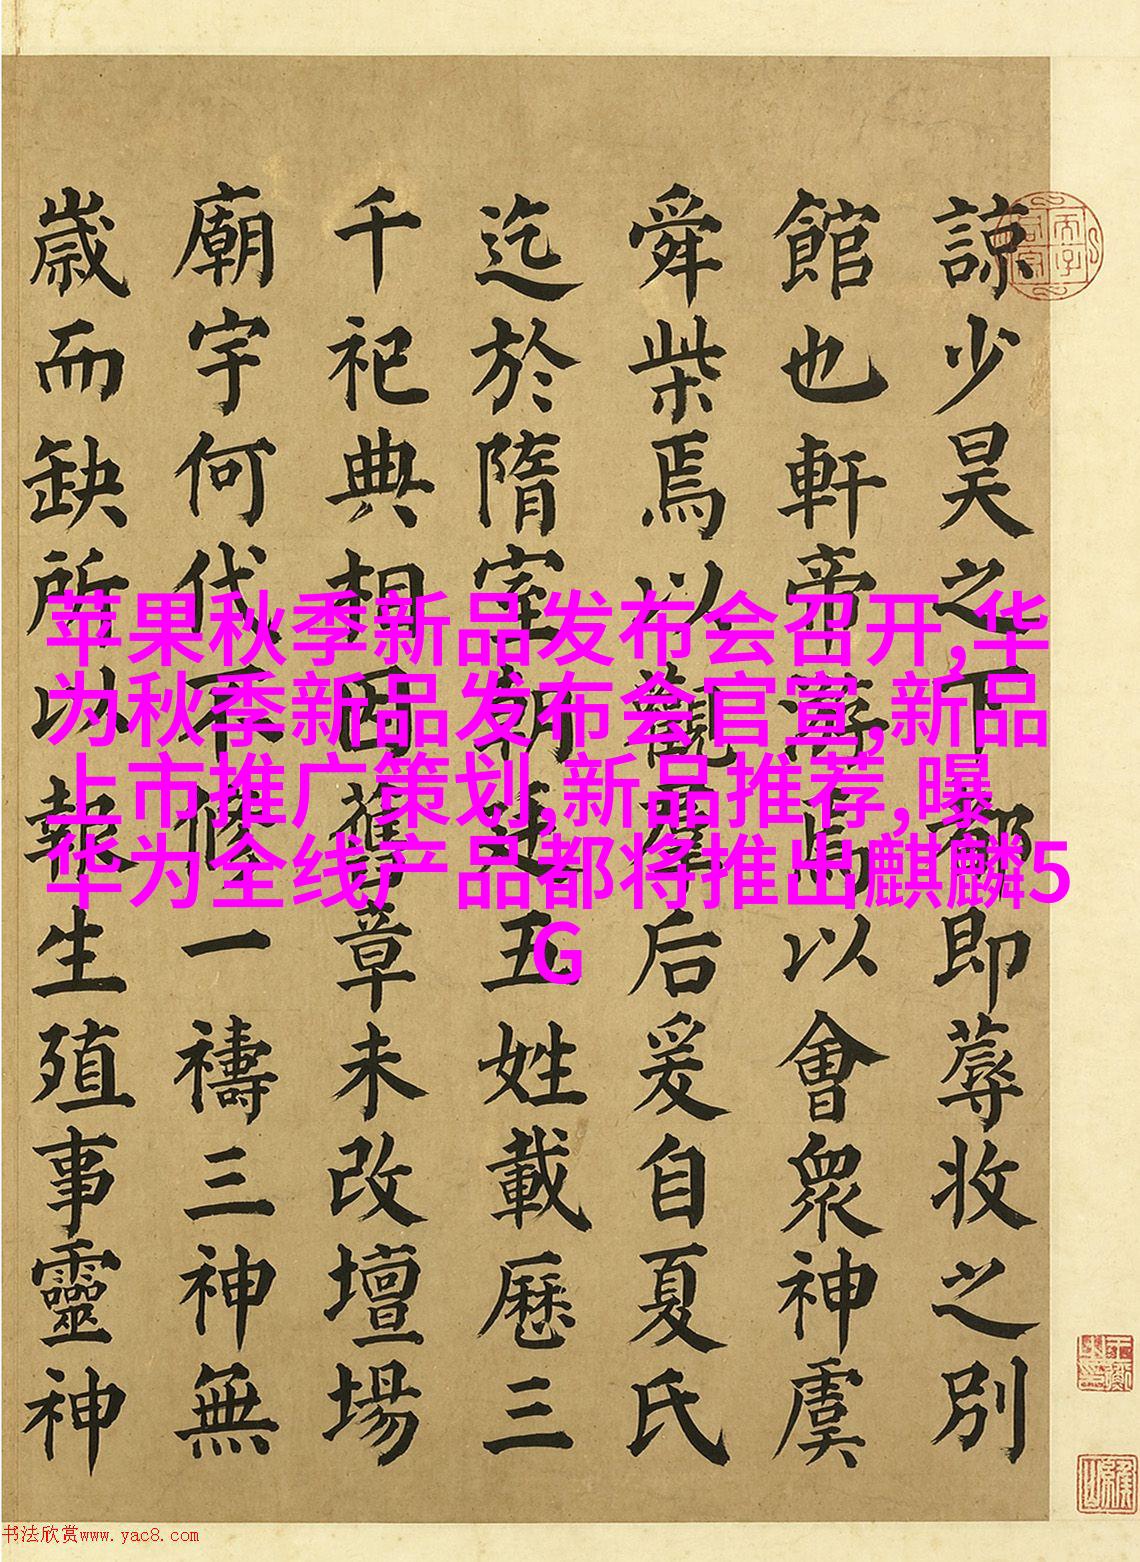 諒少昊之下都即蓐收之別
館也軒帝遊焉以會眾神虞
舜柴焉以觀羣后爰自夏氏
迄於隋室朝五姓載歷三
千祀典相因舊章未改壇場
廟宇何代不修一禱三神無
歲而缺所以報生殖事靈神
苹果秋季新品发布会召开,华
为秋季新品发布会官宣,新品
上市推广策划,新品推荐,曝
华为全线产品都将推出麒麟5
G
书法欣赏www.yac8.com